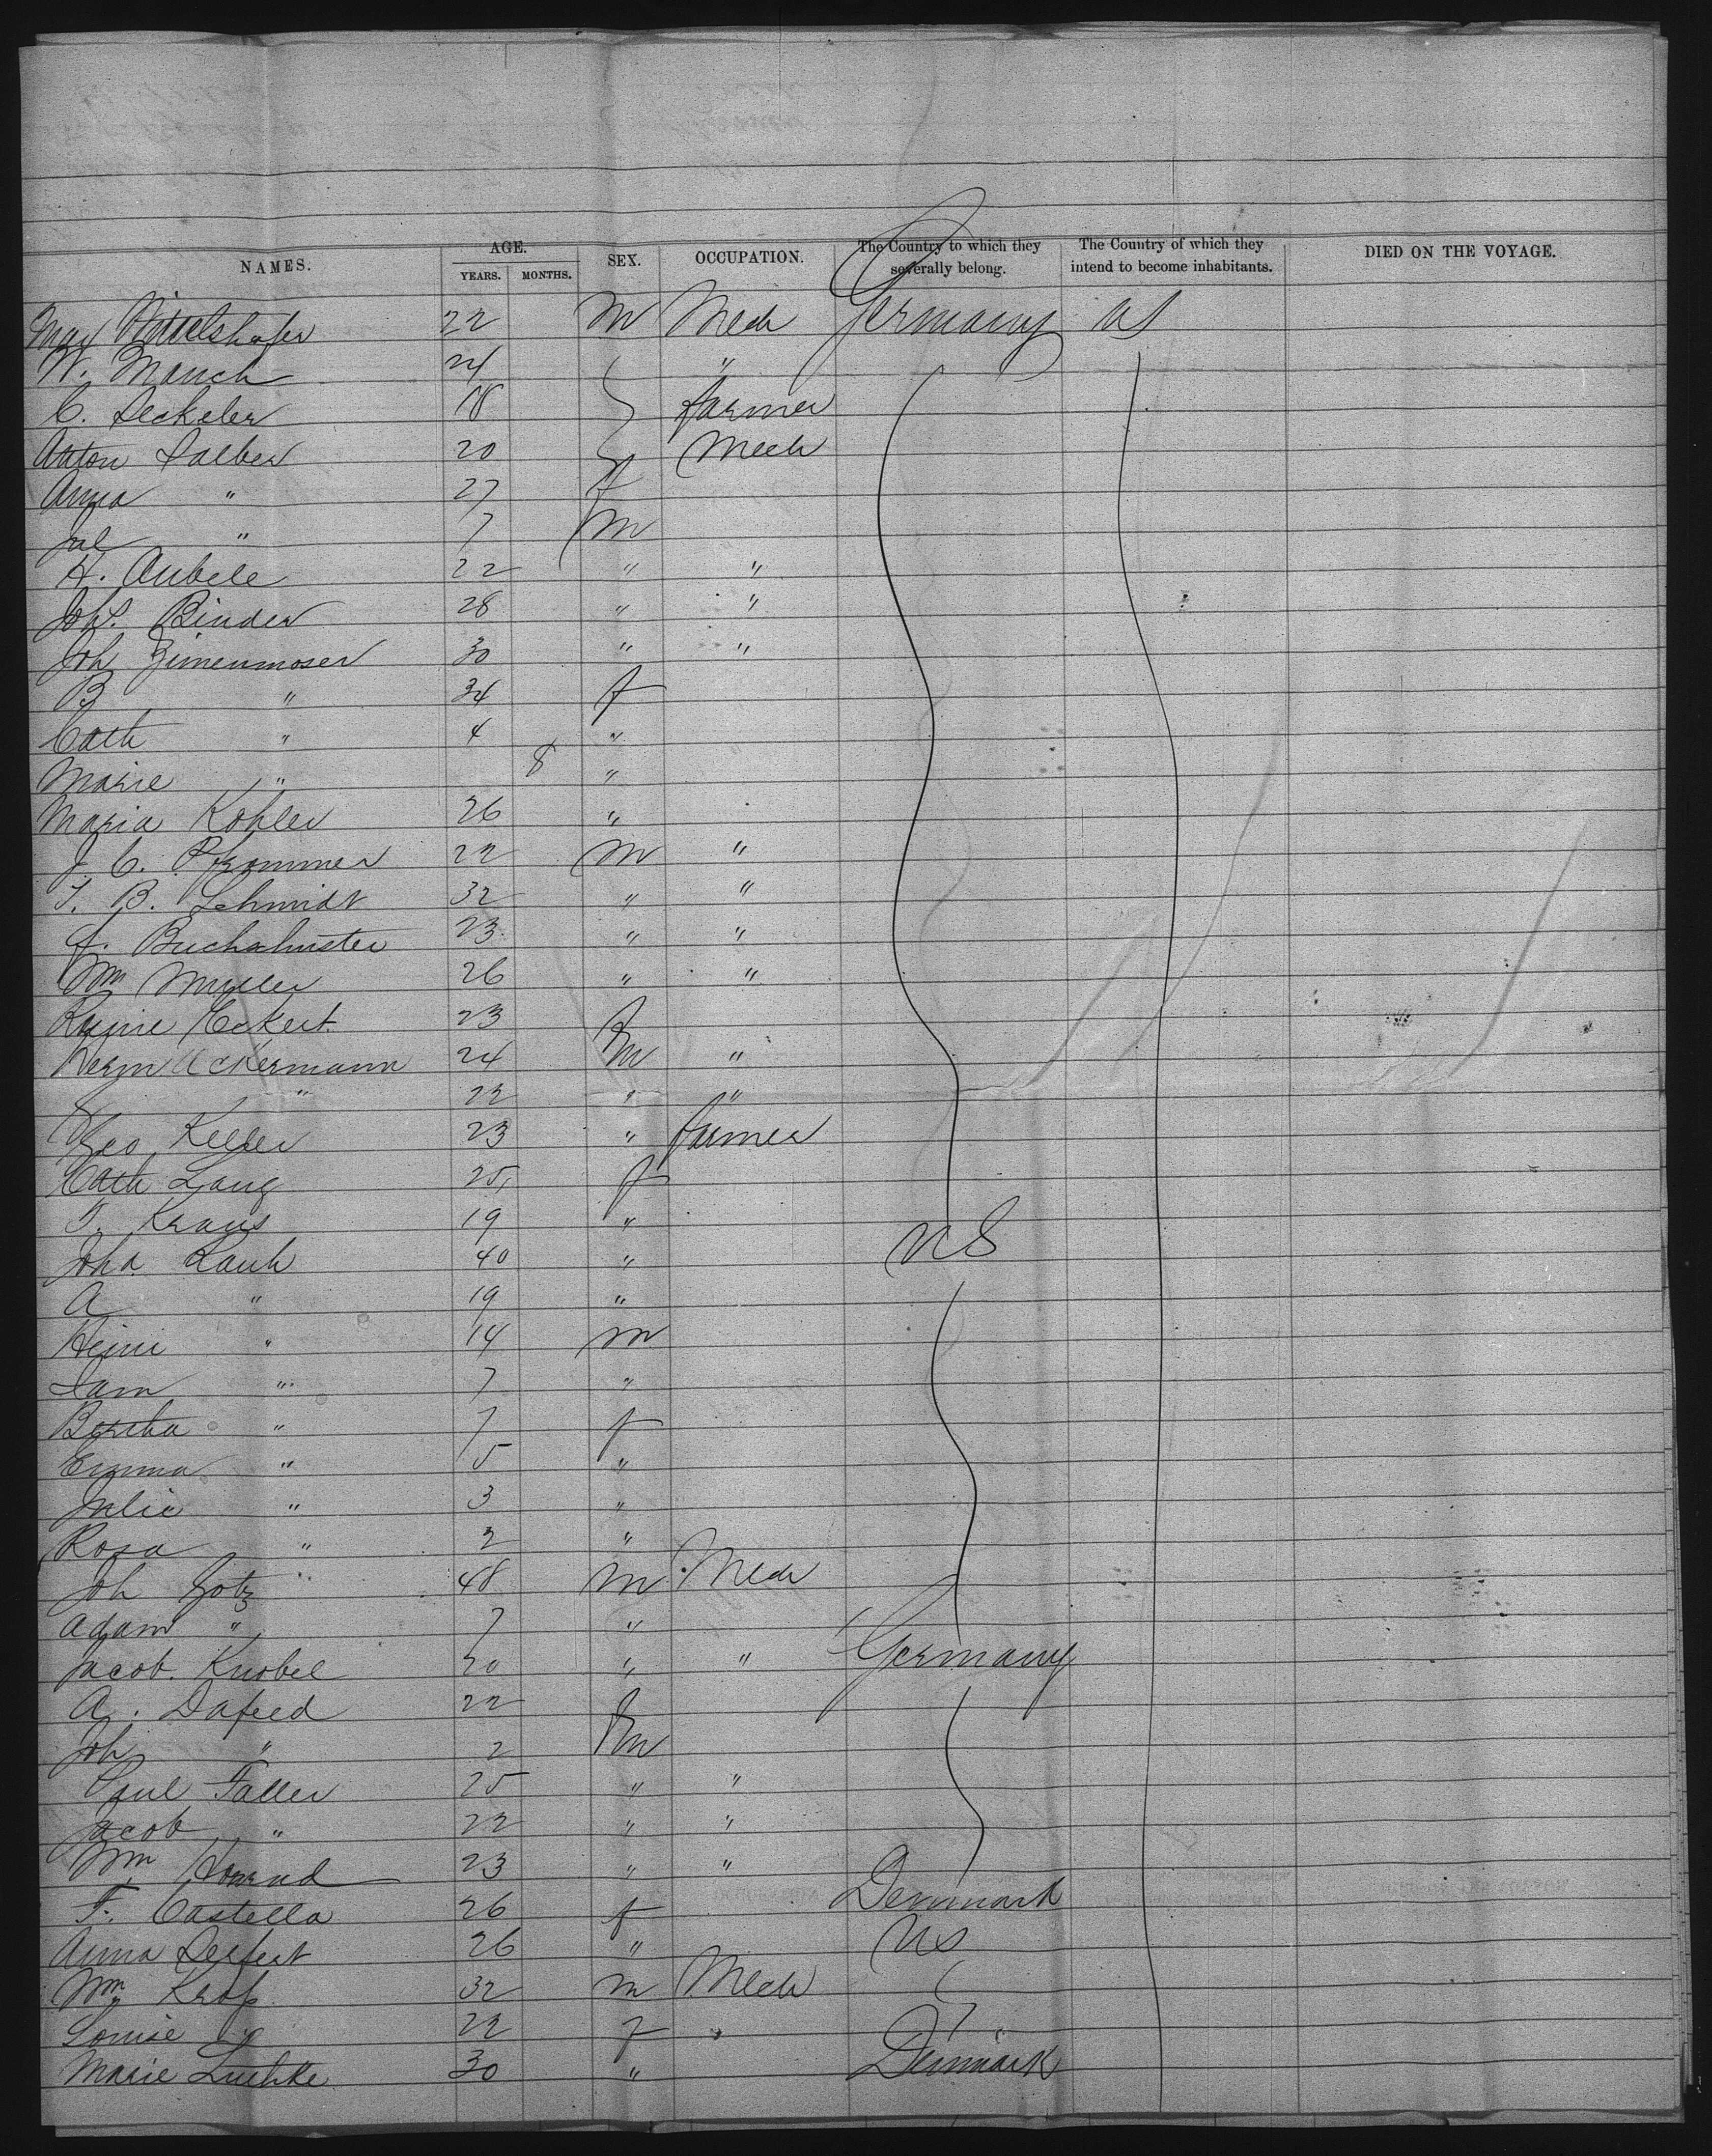 NAMES. AGE. YEARS. MONTHS. SEX. OCCUPATION. The Country to which they severally belong. The Country of which they intend to become inhabitants. DIED ON THE VOYAGE.
Max 22 m Mech Germany US
W. Mauch 24 "
C. Deckeler 18 farmer
Anton Salber 20 Mech
Anna " 27 f
Jul " 7 m
H. Aubele 22 " "
Joh. Binder 28 " "
Joh Zimenmoser 30 " "
B " 34 f
Cath " 4 "
Marie " 8 "
Maria Kohler 26 "
J. C. Pfrommer 22 m "
T. B. Schmidt 32 " "
J. 23 " "
Wm Muller 26 " "
Regine Eckert 23 f
Herm Ackermann 24 m "
" 22 " "
Geo Keller 23 " farmer
Cath Lang 25 f
F. Kraus 19 "
Joha Rauh 40 " US
A " 19 "
Heini " 14 m
Sam " 7 "
Bertha " 7 f
Emma " 5 "
Julie " 3 "
Rosa " 2 "
Joh Gotz " 48 m Mech
Adam " 7 "
Jacob Knobel 20 " " Germany
A. Dafeed 22 f
Joh " 2 m
Paul Faller 25 " "
Jacob " 22 " "
Wm Konrad 23 " "
F. Castella 26 f Denmark
Anna Seifert 26 " US
Wm Krop 32 m Mech
Louise " 22 f
Marie Luehke 30 " Denmark